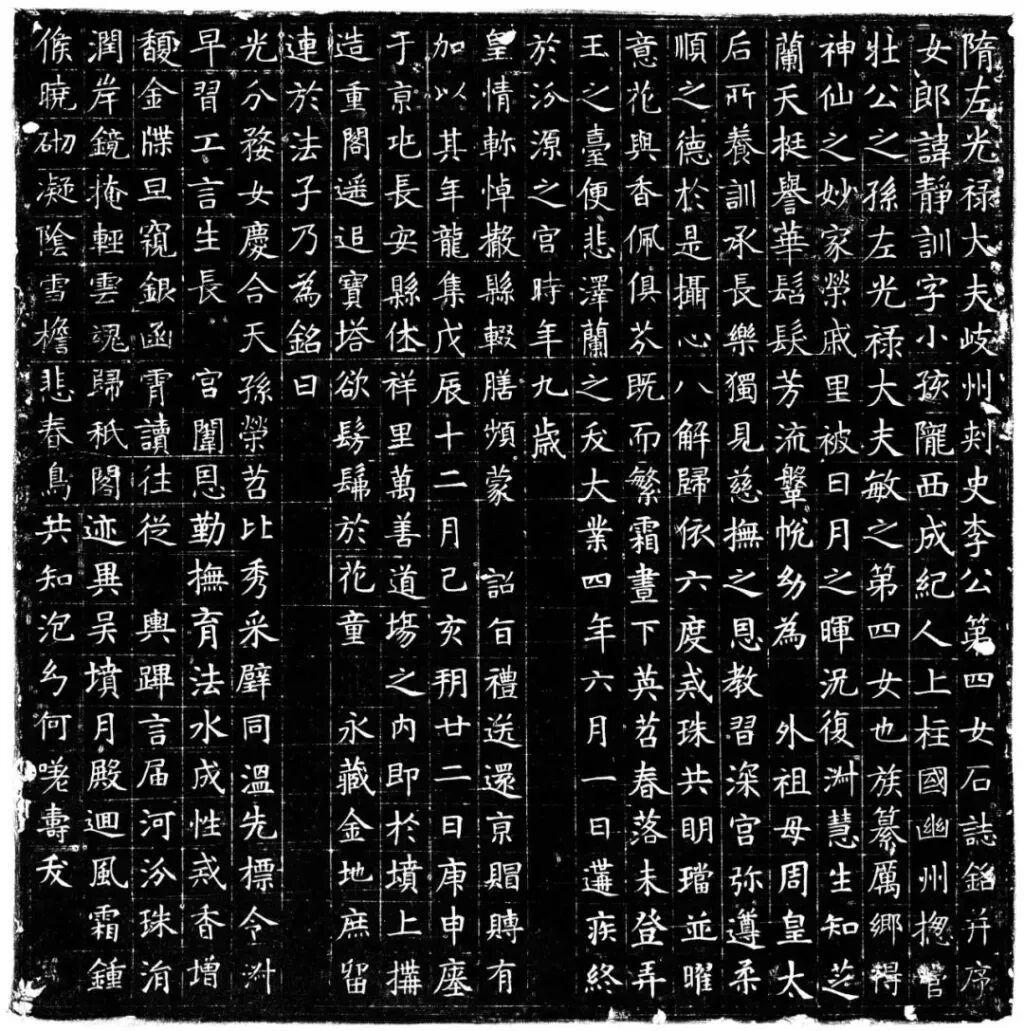 隋左光禄大夫岐州刺史李公第四女石誌銘并序
女郎諱静訓字小孩隴西成紀人上柱國幽州揔管
壯公之孫左光禄大夫敏之第四女也族纂厲鄉得
神仙之妙家榮戚里被日月之暉況復淑慧生知芝
蘭天挺譽華髫髮芳流鞶帨幼為 外祖母周皇太
后所養訓承長樂獨見慈撫之恩教習深宮弥遵柔
順之德於是攝心八解歸依六度戒珠共明璫並曜
意花與香佩俱芬既而繁霜晝下英苕春落未登弄
玉之臺便悲澤蘭之夭大業四年六月一日遘疾終
於汾源之宮時年九歲
皇情軫悼撤縣輟膳頻蒙 詔旨禮送還京賵賻有
加以其年龍集戊辰十二月己亥朔廿二日庚申瘞
于京地長安縣休祥里萬善道場之内即於墳上搆
造重閣遥追寶塔欲髣髴於花童 永藏金地庶留
連於法子乃為銘曰
光分婺女慶合天孫榮苕比秀采璧同温先標令淑
早習工言生長 宮闈恩勤撫育法水成性戒香增
馥金牒旦窺銀函霄讀往從 輿蹕言届河汾珠涓
潤岸鏡掩輕雲魂歸祇閣迹異吴墳月殿迴風霜鍾
候曉砌凝陰雪檐悲春鳥共知泡幻何嗟壽夭